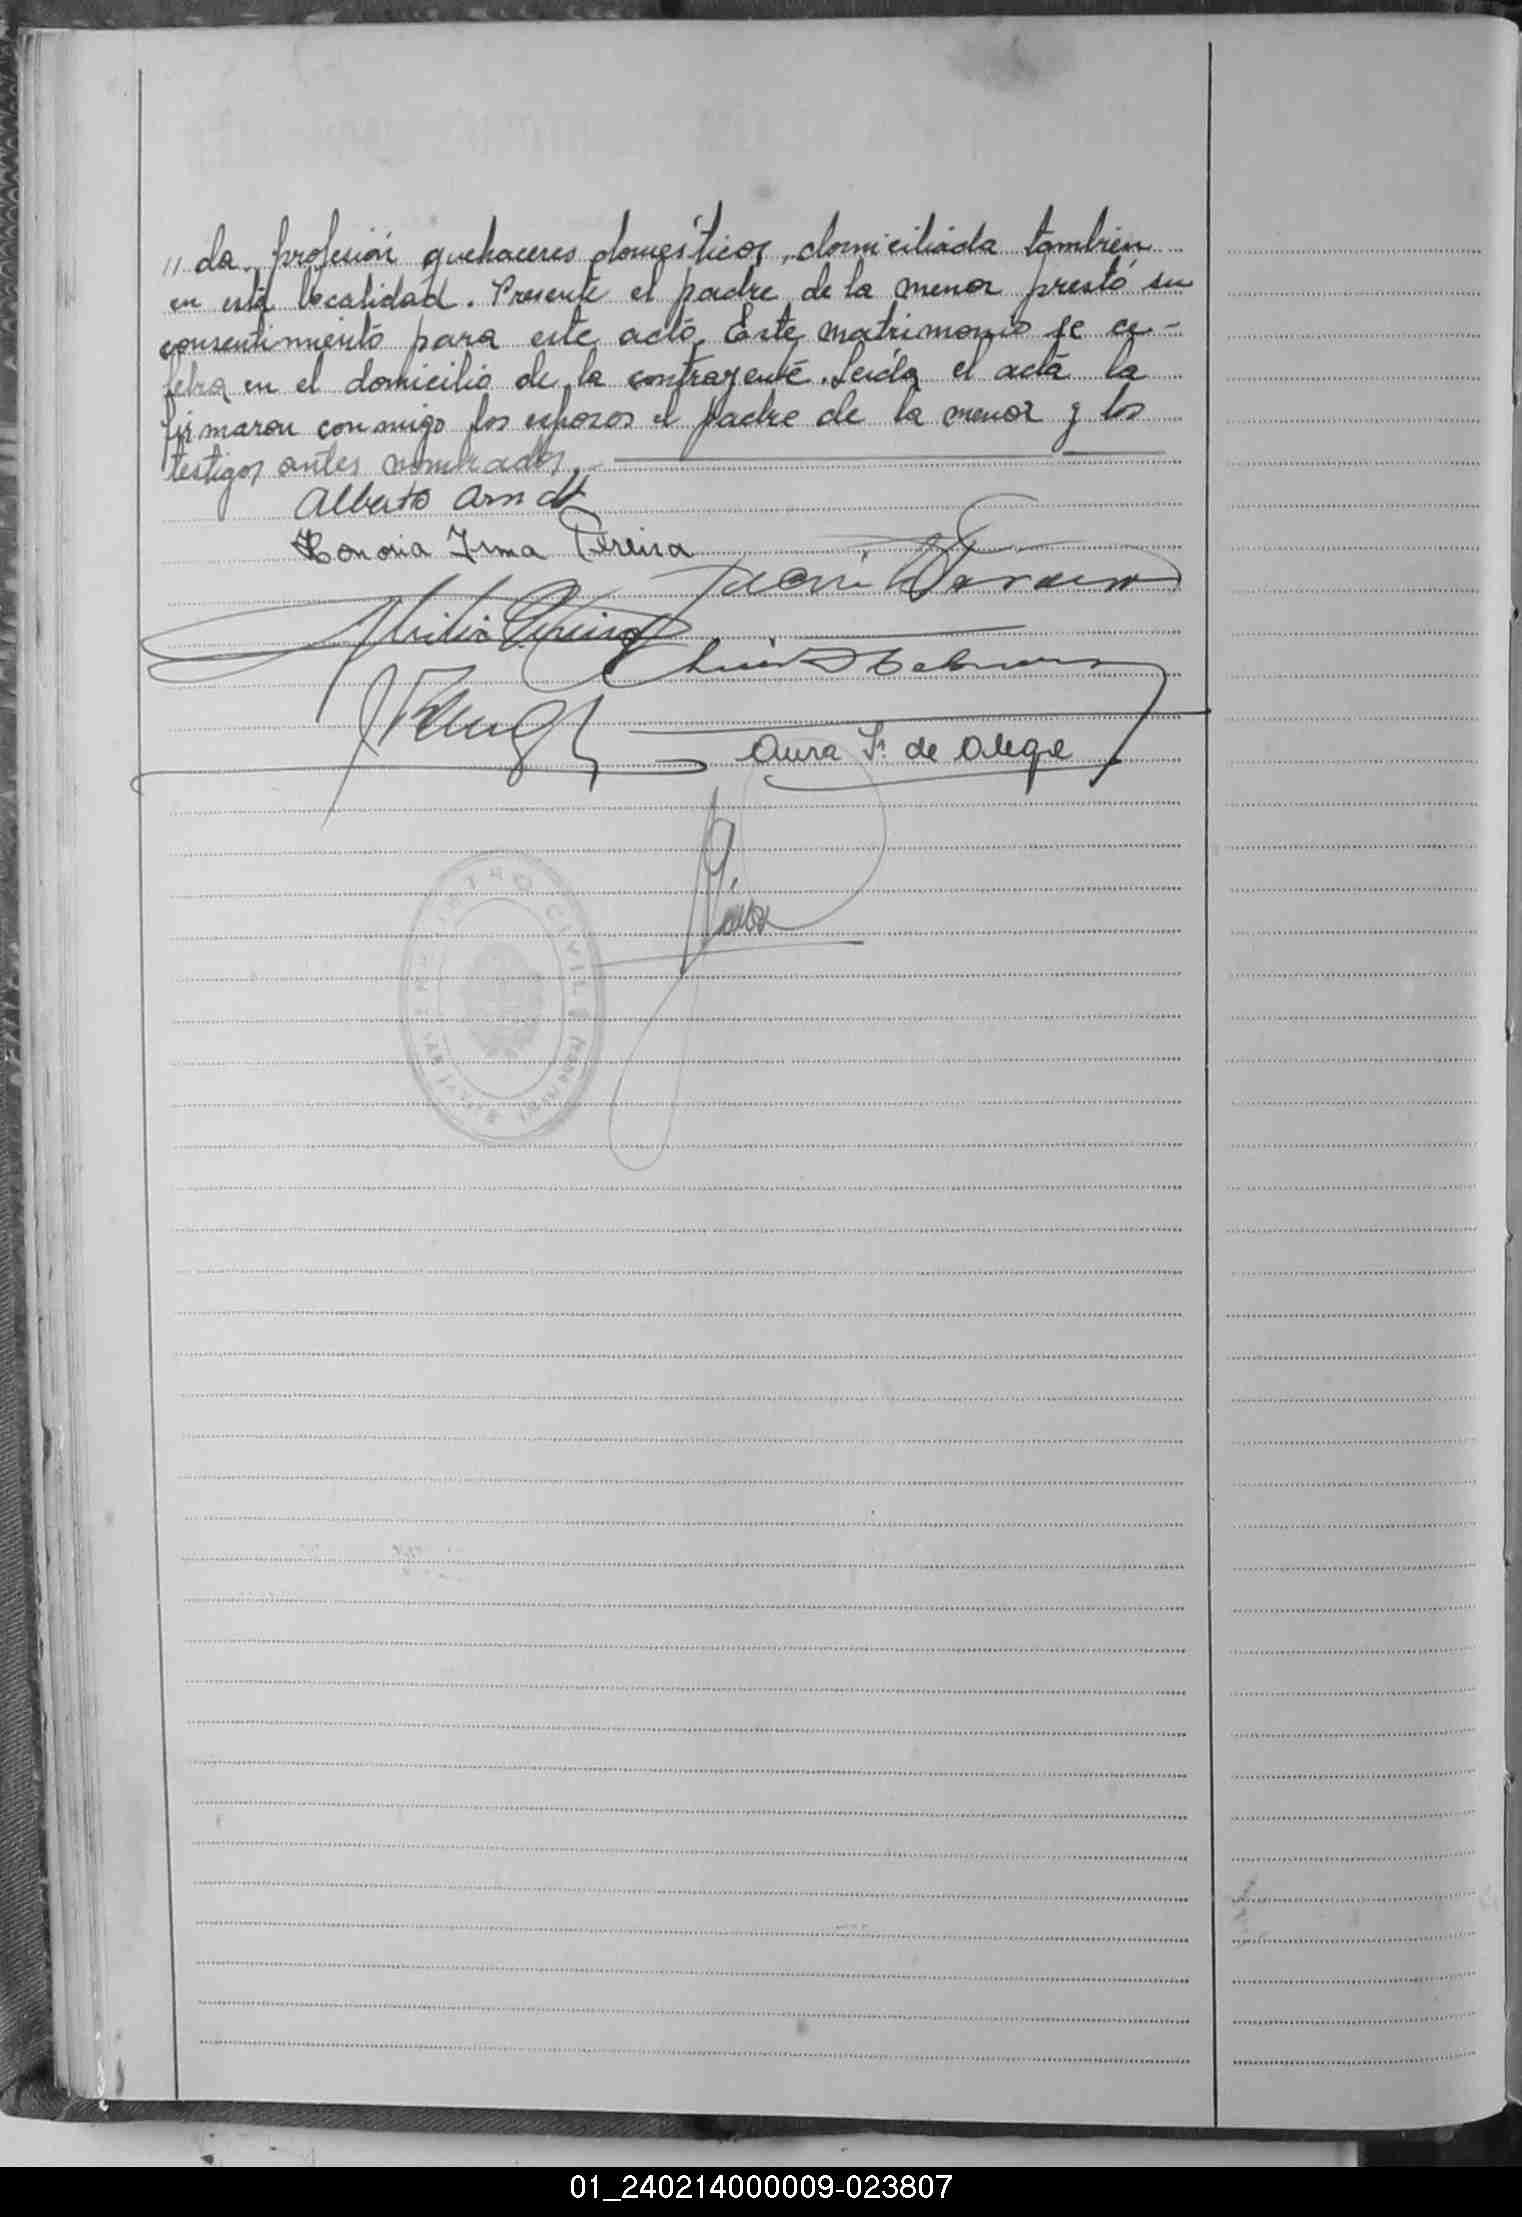 " da, profesión quehaceres domésticos, domiciliada también
en esta localidad. Presente el padre de la menor prestó su
consentimiento para este acto. Este matrimonio se ce-
lebra en el domicilio de la contrayente. Leída el acta la
firmaron conmigo los esposos el padre de la menor y los
testigos antes nombrados.
Alberto Arndt
Honoria Irma Pereira
Pereira
Aura de Alega
CIVIL
01_240214000009-023807